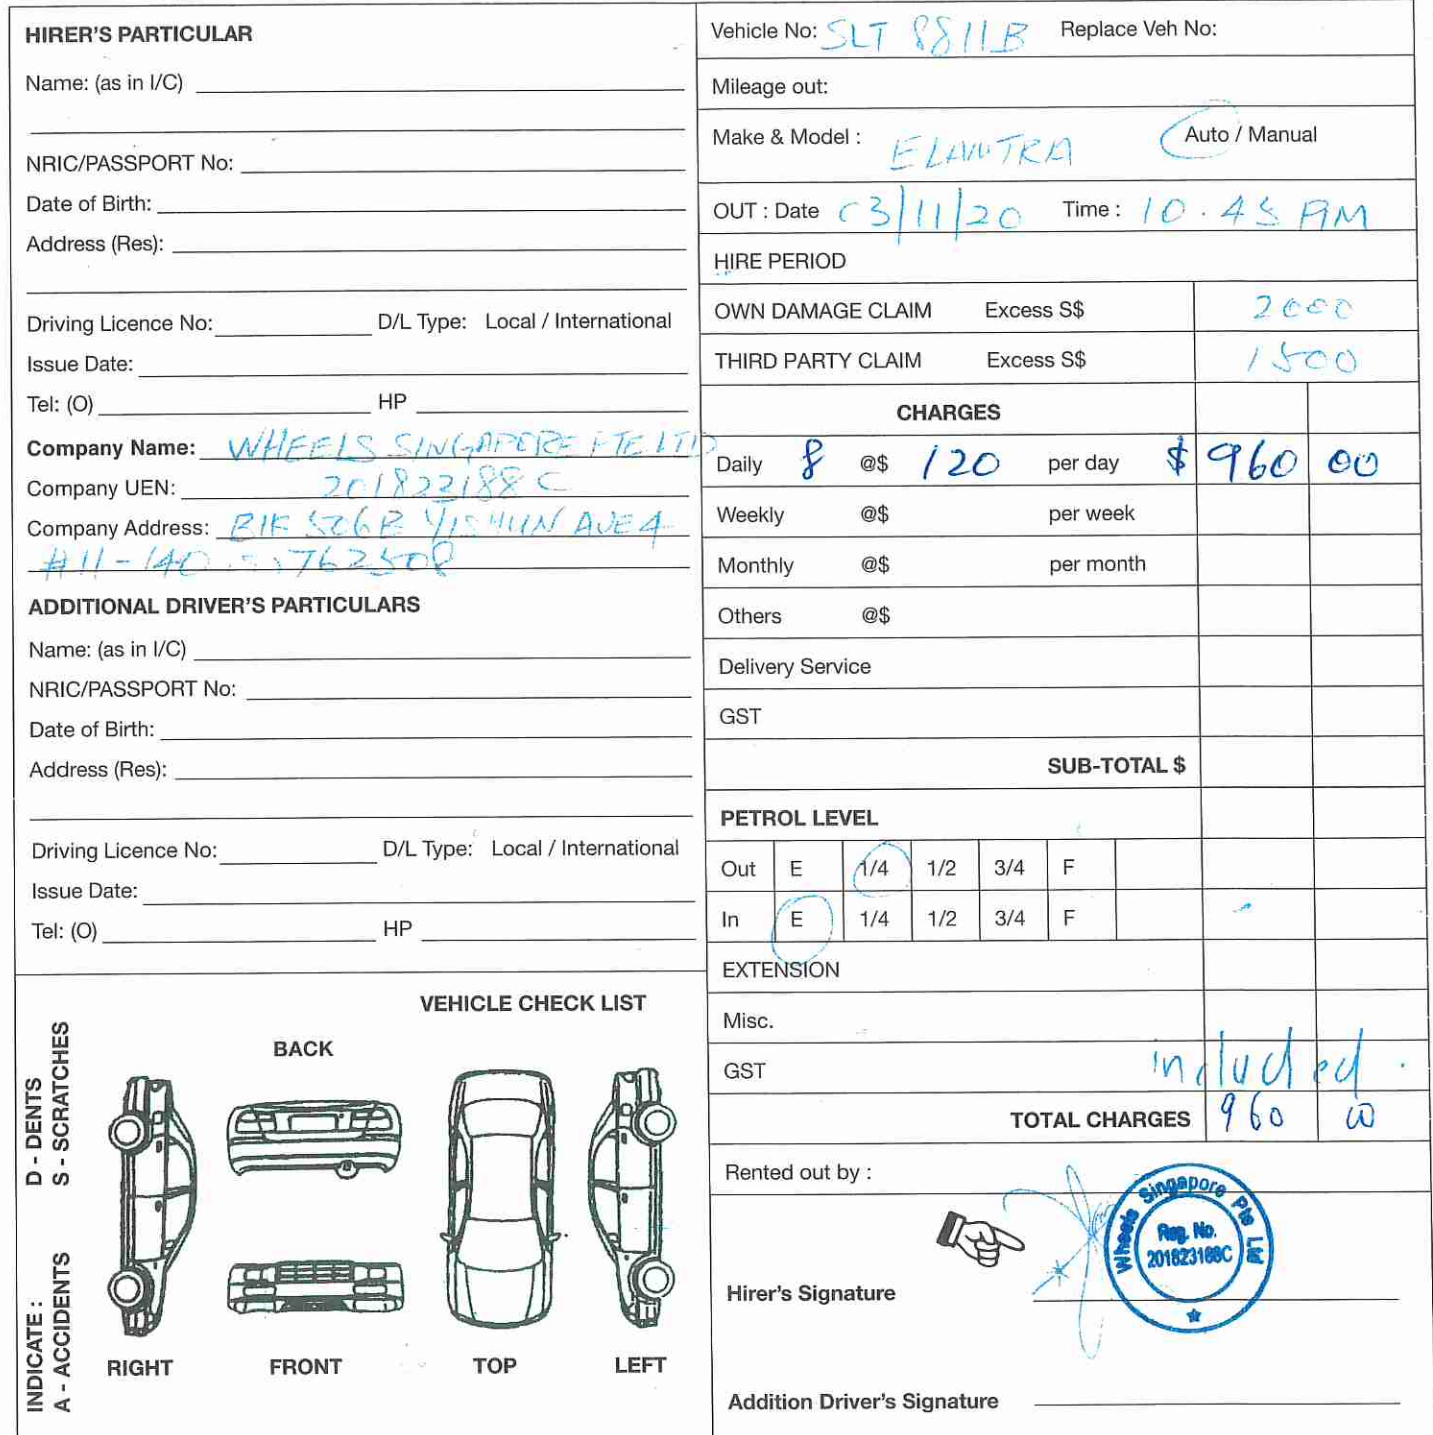 HIRER'S PARTICULAR
Name: (as in I/C)
NRIC/PASSPORT No:
Date of Birth:
Address (Res):
Driving Licence No: D/L Type: Local / International
Issue Date:
Tel: (O) HP
Company Name: WHEELS SINGAPORE PTE LTD
Company UEN: 201823188C
Company Address: BLK 506B YISHUN AVE 4
#11-140 762508
ADDITIONAL DRIVER'S PARTICULARS
Name: (as in I/C)
NRIC/PASSPORT No:
Date of Birth:
Address (Res):
Driving Licence No: D/L Type: Local / International
Issue Date:
Tel: (O) HP
VEHICLE CHECK LIST
INDICATE : D - DENTS
A - ACCIDENTS S - SCRATCHES
BACK
RIGHT FRONT TOP LEFT
Vehicle No: SLT 8811B Replace Veh No:
Mileage out:
Make & Model : ELANTRA Auto / Manual
OUT : Date 03/11/20 Time : 10.45 AM
HIRE PERIOD
OWN DAMAGE CLAIM Excess S$ 2000
THIRD PARTY CLAIM Excess S$ 1500
CHARGES
Daily 8 @$ 120 per day $ 960 00
Weekly @$ per week
Monthly @$ per month
Others @$
Delivery Service
GST
SUB-TOTAL $
PETROL LEVEL
Out E 1/4 1/2 3/4 F
In E 1/4 1/2 3/4 F
EXTENSION
Misc.
GST included.
TOTAL CHARGES 960 00
Rented out by :
Hirer's Signature
Wheels Singapore Pte Ltd
Reg. No.
201823188C
Addition Driver's Signature